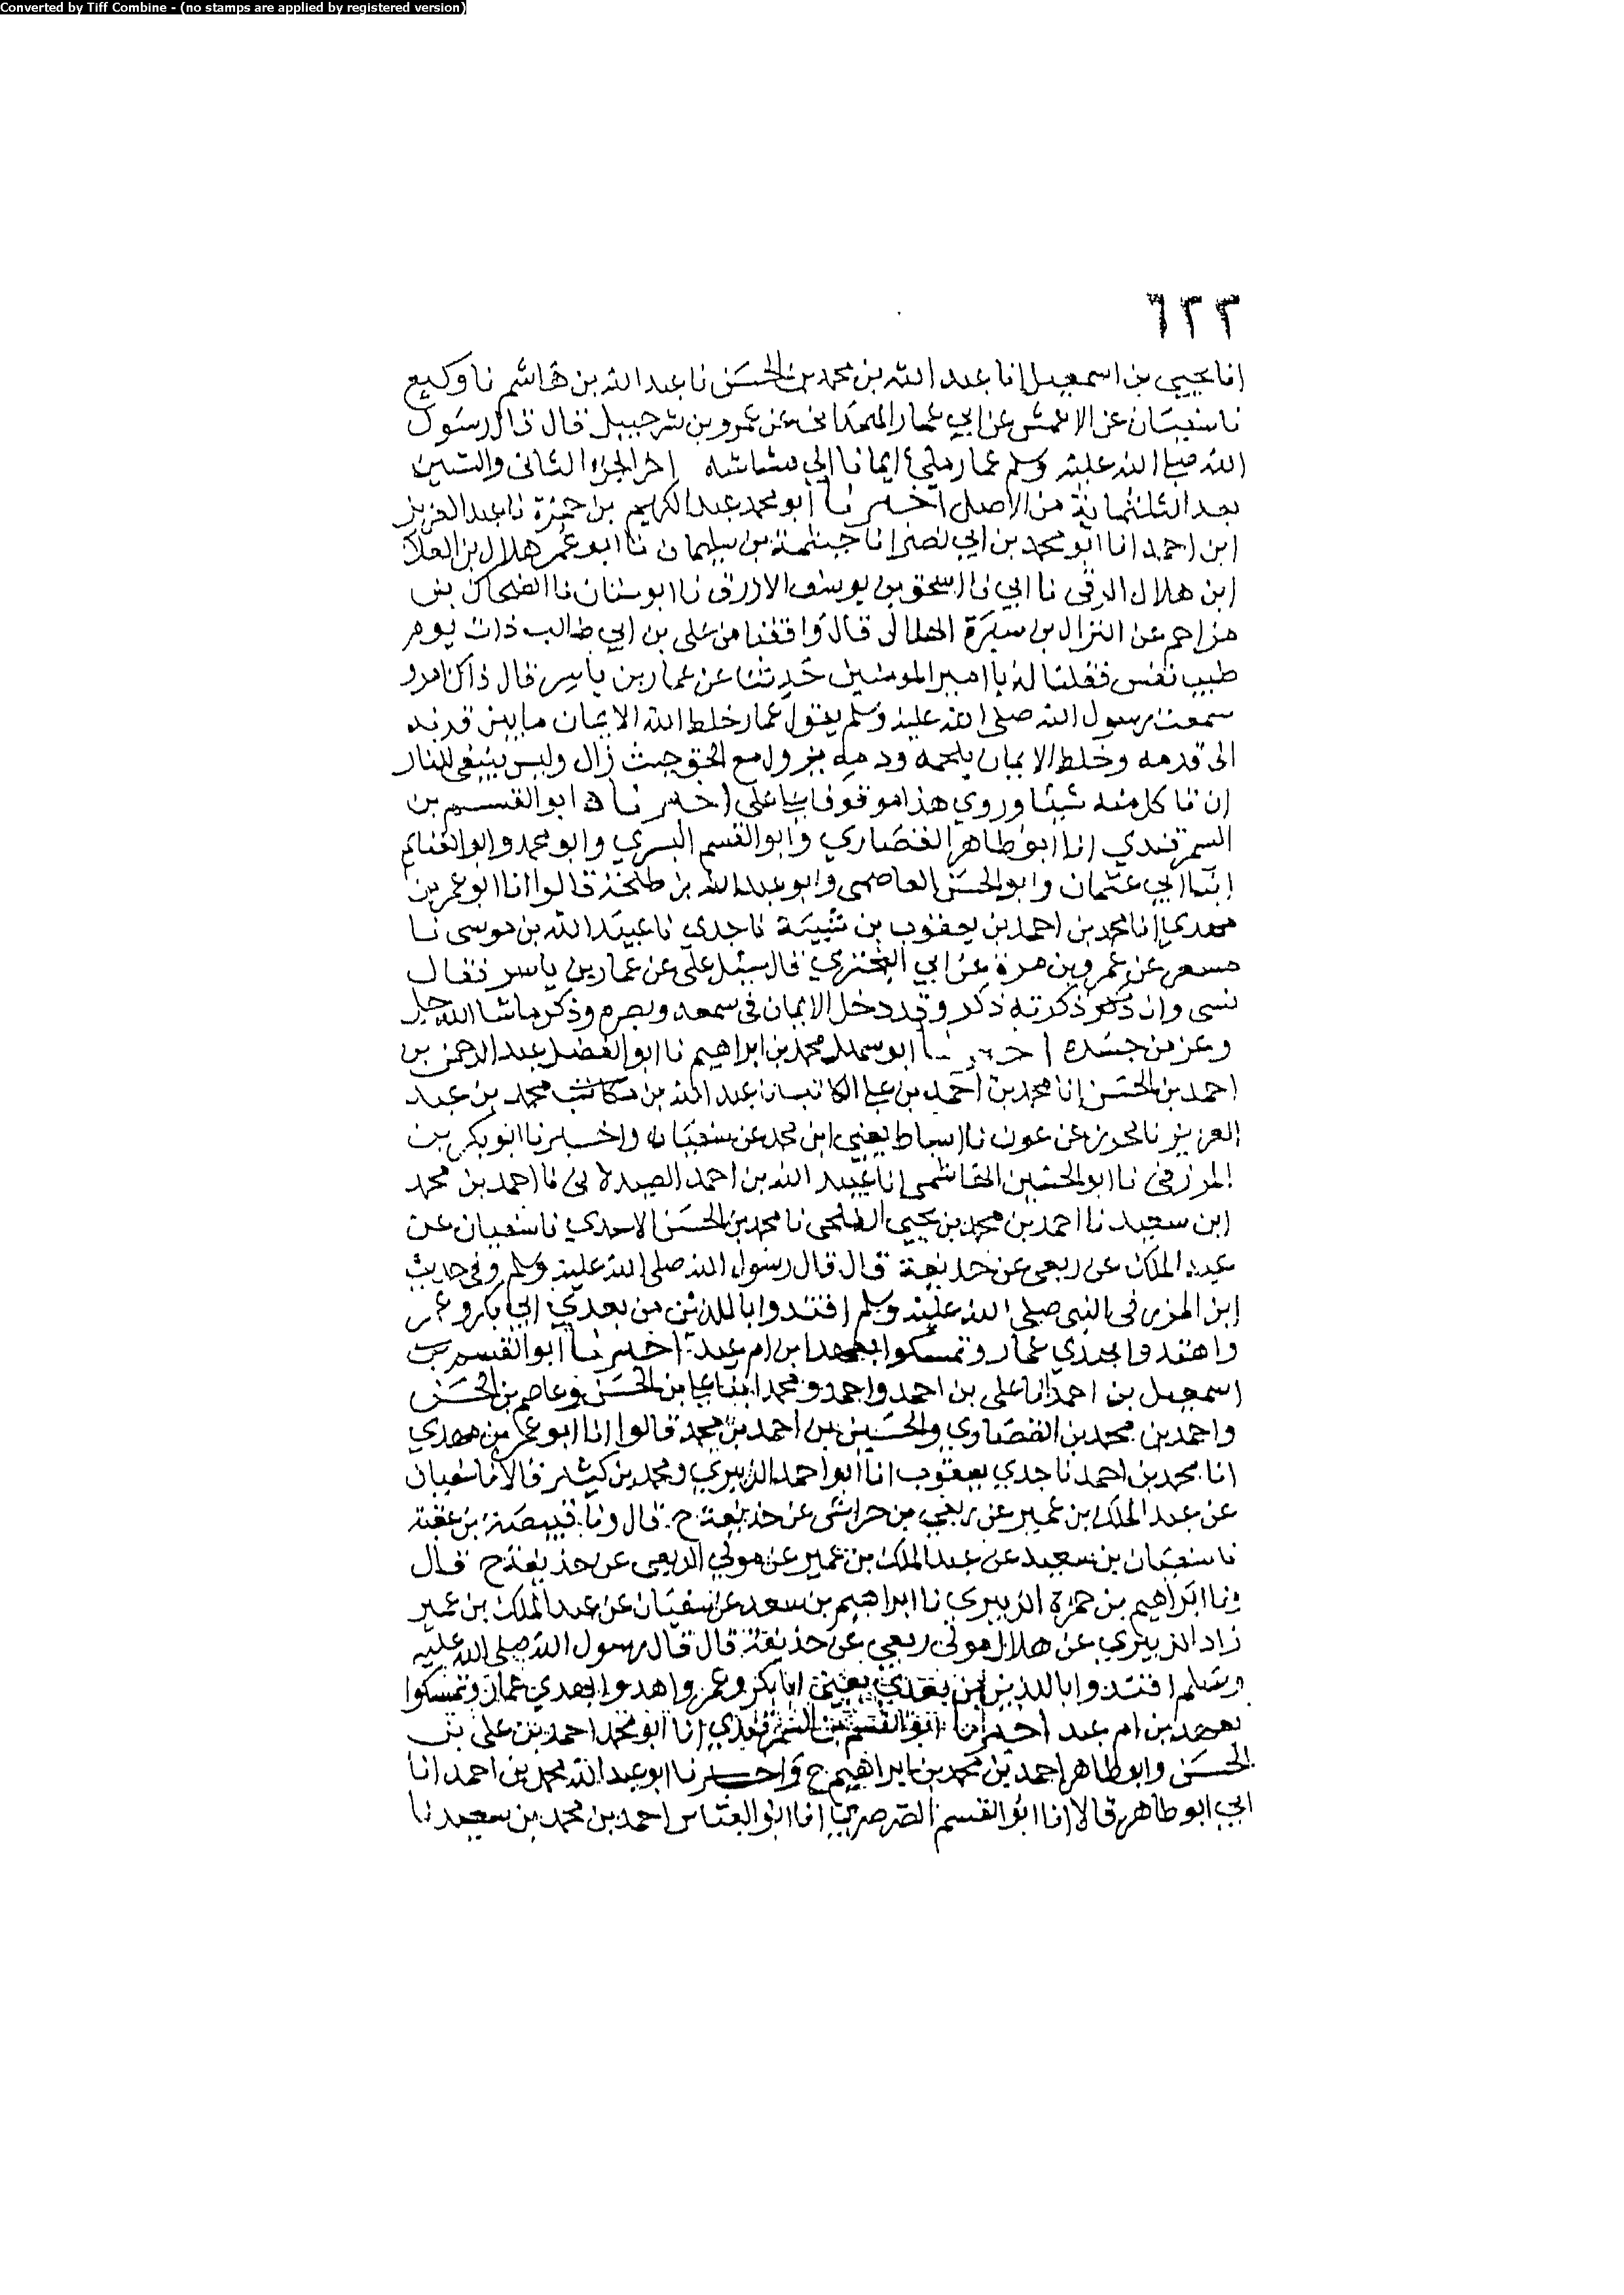 Converted by Tiff Combine - (no stamps are applied by registered version)
٦٢٣
انا يحيى بن اسمعيل انا عبد الله بن محمد بن الحسن نا عبد الله بن هاشم نا وكيع
نا سفيان عن الاعمش عن ابي عمار الهمداني عن عمرو بن شرحبيل قال قال رسول
الله صلى الله عليه وسلم عمار ملئ ايمانا الى مشاشه اخر الجزء الثاني والستين
بعد الثلثمائة من الاصل اخبرنا ابو محمد عبد الكريم بن حمزة نا عبد العزيز
ابن احمد انا ابو محمد بن ابي نصر انا خيثمة بن سليمان نا ابو عمر هلال بن العلا
ابن هلال الرقي نا ابي نا اسحق بن يوسف الازرق نا ابو سنان نا الضحاك بن
مزاحم عن النزال بن سبرة الهلالى قال وافقنا من على بن ابي طالب ذات يوم
طيب نفس فقلنا له يا امير المومنين حدثنا عن عمار بن ياسر قال ذاك امرو
سمعت رسول الله صلى الله عليه وسلم يقول عمار خلط الله الايمان ما بين قرنه
الى قدمه وخلط الايمان بلحمه ودمه يزول مع الحق حيث زال وليس ينبغي للنار
ان تاكل منه شيئا وروي هذا موقوفا على اخبرناه ابو القسم بن
السمرقندي انا ابو طاهر القصاري وابو القسم البسري وابو محمد وابو الغنايم
ابنا ابي عثمان وابو الحسن العاصمى وابو عبد الله بن طلحة قالوا انا ابو عمر بن
مهدي انا محمد بن احمد بن يعقوب بن شيبة نا جدي نا عبيد الله بن موسى نا
مسعر عن عمرو بن مرة عن ابي البختري قال سيل على عن عمار بن ياسر فقال
نسى وان ذكرته ذكر وقد دخل الايمان فى سمعه وبصره وذكر ما شا الله جل
وعز من جسده اخبرنا ابو سعد محمد بن ابراهيم نا ابو الفضل عبد الرحمن بن
احمد بن الحسن انا محمد بن احمد بن على الكاتب نا عبد الله بن محمد بن عبد
العزيز نا محرز بن عون نا اسباط يعني ابن محمد عن سفيان واخبرنا ابو بكر بن
المزرفى نا ابو الحسين الهاشمى انا عبيد الله بن احمد الصيدلانى نا احمد بن محمد
ابن سعيد نا احمد بن محمد بن يحيى الطلحى نا محمد بن الحسن الاسدي نا سفيان عن
عبد الملك عن ربعى عن حذيفة قال قال رسول الله صلى الله عليه وسلم وفى حديث
ابن المزرفى النبى صلى الله عليه وسلم اقتدوا باللذين من بعدي ابي بكر وعمر
واهتدوا بهدي عمار وتمسكوا بعهد ابن ام عبد اخبرنا ابو القسم بن
اسمعيل بن احمد انا على بن احمد واحمد ومحمد ابنا على بن الحسن وعاصم بن الحسن
واحمد بن محمد بن القصاري والحسين بن احمد بن محمد قالوا انا ابو عمر بن مهدي
انا محمد بن احمد نا جدي يعقوب انا ابو احمد الزبيري ومحمد بن كثير قالا نا سفيان
عن عبد الملك بن عمير عن ربعي بن حراش عن حذيفة ح قال ونا قبيصة بن عقبة
نا سفيان بن سعيد عن عبد الملك بن عمير عن مولى الربعى عن حذيفة ح قال
ونا ابراهيم بن حمزة الزبيري نا ابراهيم بن سعد عن سفيان عن عبد الملك بن عمير
زاد الزبيري عن هلال مولى ربعي عن حذيفة قال قال رسول الله صلى الله عليه
وسلم اقتدوا باللذين من بعدي يعني ابا بكر وعمر واهدوا بهدي عمار وتمسكوا
بعهد بن ام عبد اخبرنا ابو القسم بن السمرقندي انا ابو محمد احمد بن على بن
الحسن وابو طاهر احمد بن محمد بن ابراهيم ح واخبرنا ابو عبد الله محمد بن احمد انا
ابي ابو طاهر قالا انا ابو القسم الصرصري انا ابو العباس احمد بن محمد بن سعيد نا